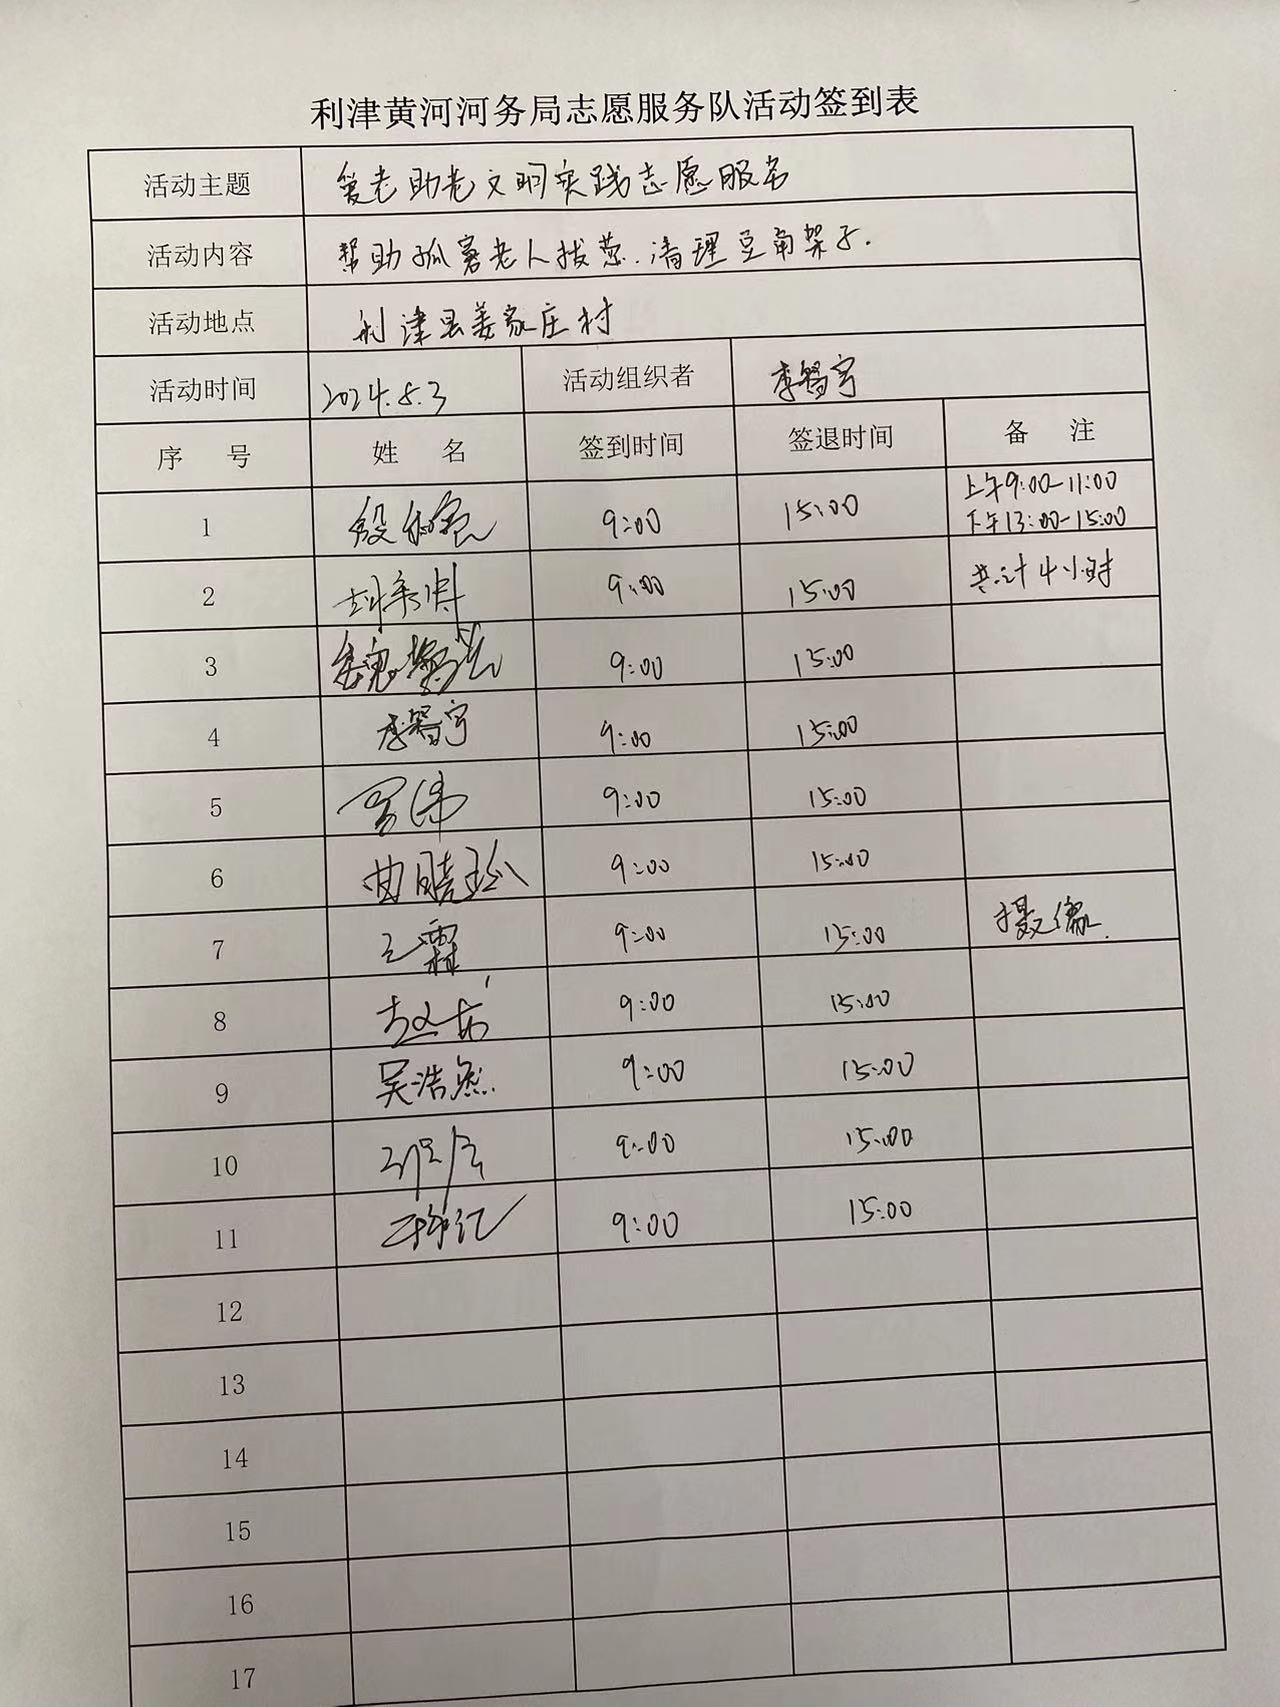 利津黄河河务局志愿服务队活动签到表
活动主题 爱老助老文明实践志愿服务
活动内容 帮助孤寡老人拔葱.清理豆角架子.
活动地点 利津县姜家庄村
活动时间 2024.5.3 活动组织者 李智宇
序 号 姓 名 签到时间 签退时间 备 注
1 9:00 15:00 上午9:00-11:00
下午13:00-15:00
2 9:00 15:00 共计4小时
3 9:00 15:00
4 李智宇 9:00 15:00
5 9:00 15:00
6 曲晓玲 9:00 15:00
7 王霖 9:00 15:00 摄像.
8 9:00 15:00
9 吴浩然 9:00 15:00
10 9:00 15:00
11 9:00 15:00
12
13
14
15
16
17